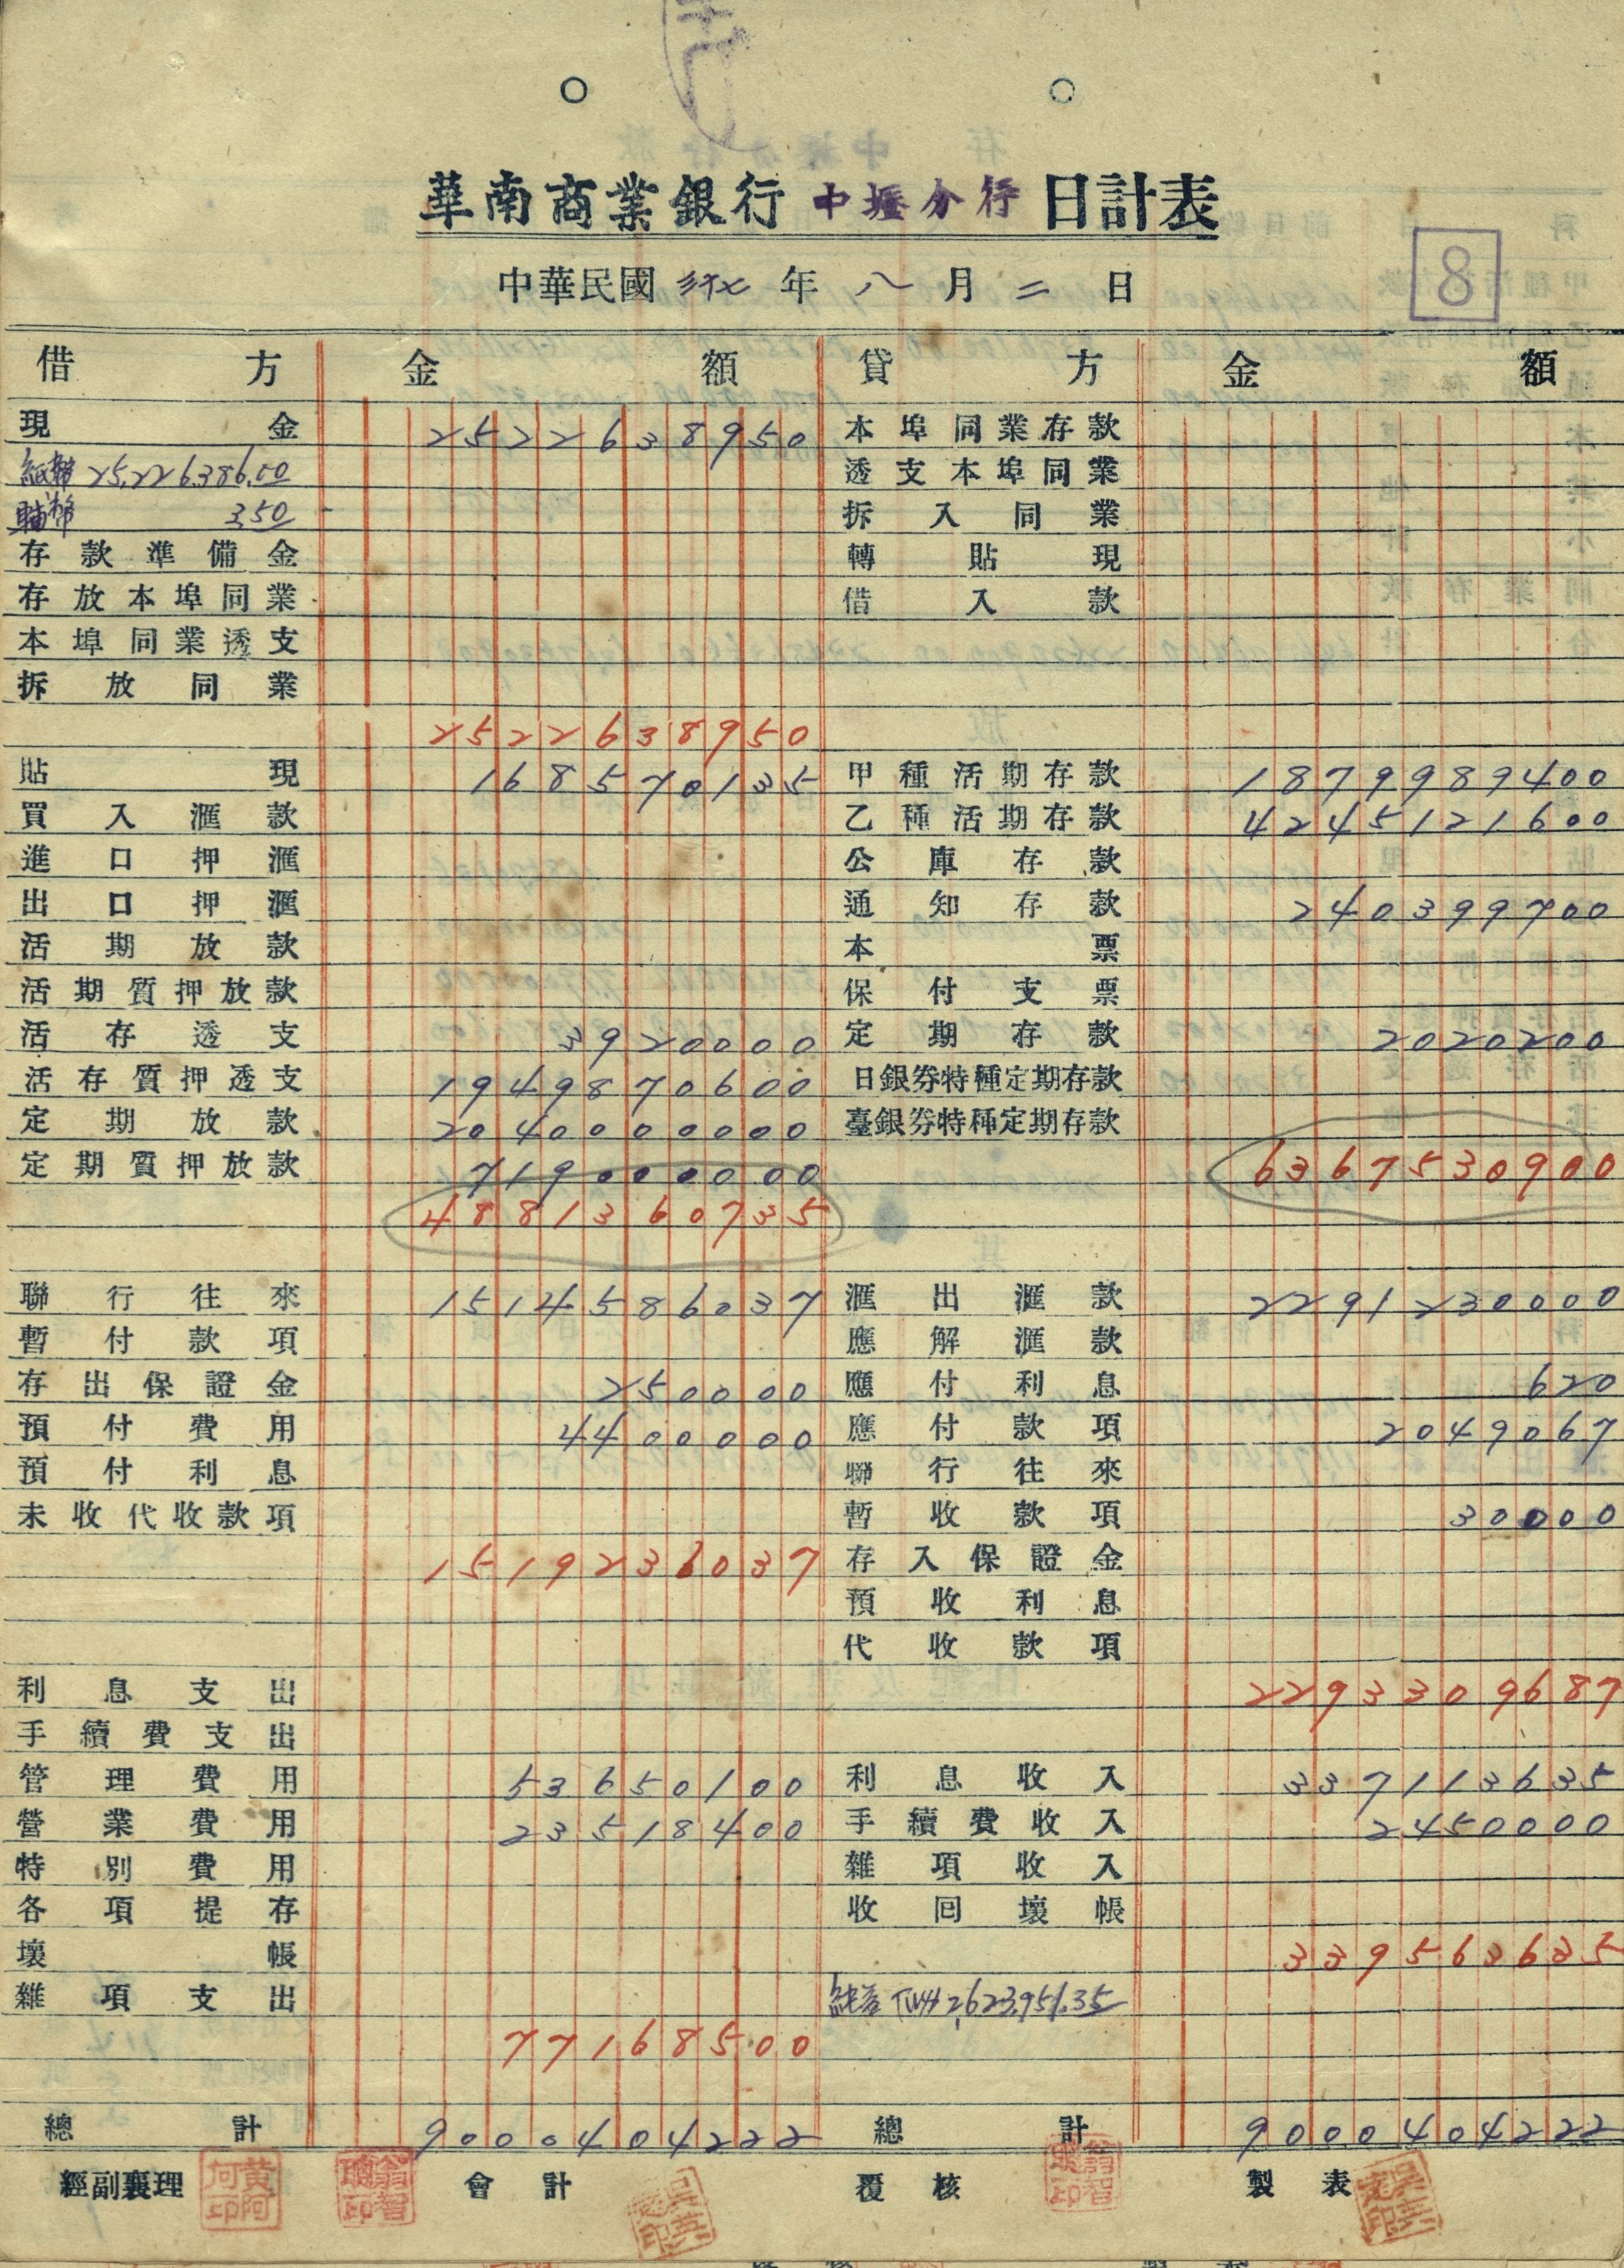 華南商業銀行 中壢分行 日計表
中華民國 三十七 年 八 月 二 日
8
借方 金額 貸方 金額
現金 2522638950 本埠同業存款
紙幣 25,226,386.00 透支本埠同業
輔幣 3.50 拆入同業
存款準備金 轉貼現
存放本埠同業 借入款
本埠同業透支
拆放同業
2522638950
貼現 168570135 甲種活期存款 1879989400
買入滙款 乙種活期存款 4245121600
進口押滙 公庫存款
出口押滙 通知存款 240399700
活期放款 本票
活期質押放款 保付支票
活存透支 3920000 定期存款 2020200
活存質押透支 1949870600 日銀券特種定期存款
定期放款 2040000000 臺銀券特種定期存款
定期質押放款 719000000 6367530900
4881360735
聯行往來 1514586037 滙出滙款 2291230000
暫付款項 應解滙款
存出保證金 250000 應付利息 620
預付費用 4400000 應付款項 2049067
預付利息 聯行往來
未收代收款項 暫收款項 30000
1519236037 存入保證金
預收利息
代收款項
利息支出 2293309687
手續費支出
管理費用 53650100 利息收入 337113635
營業費用 23518400 手續費收入 2450000
特別費用 雜項收入
各項提存 收回壞帳
壞帳 339563635
雜項支出 純益 TW¥ 2,623,951.35
77168500
總計 9000404222 總計 9000404222
經副襄理 會計 覆核 製表